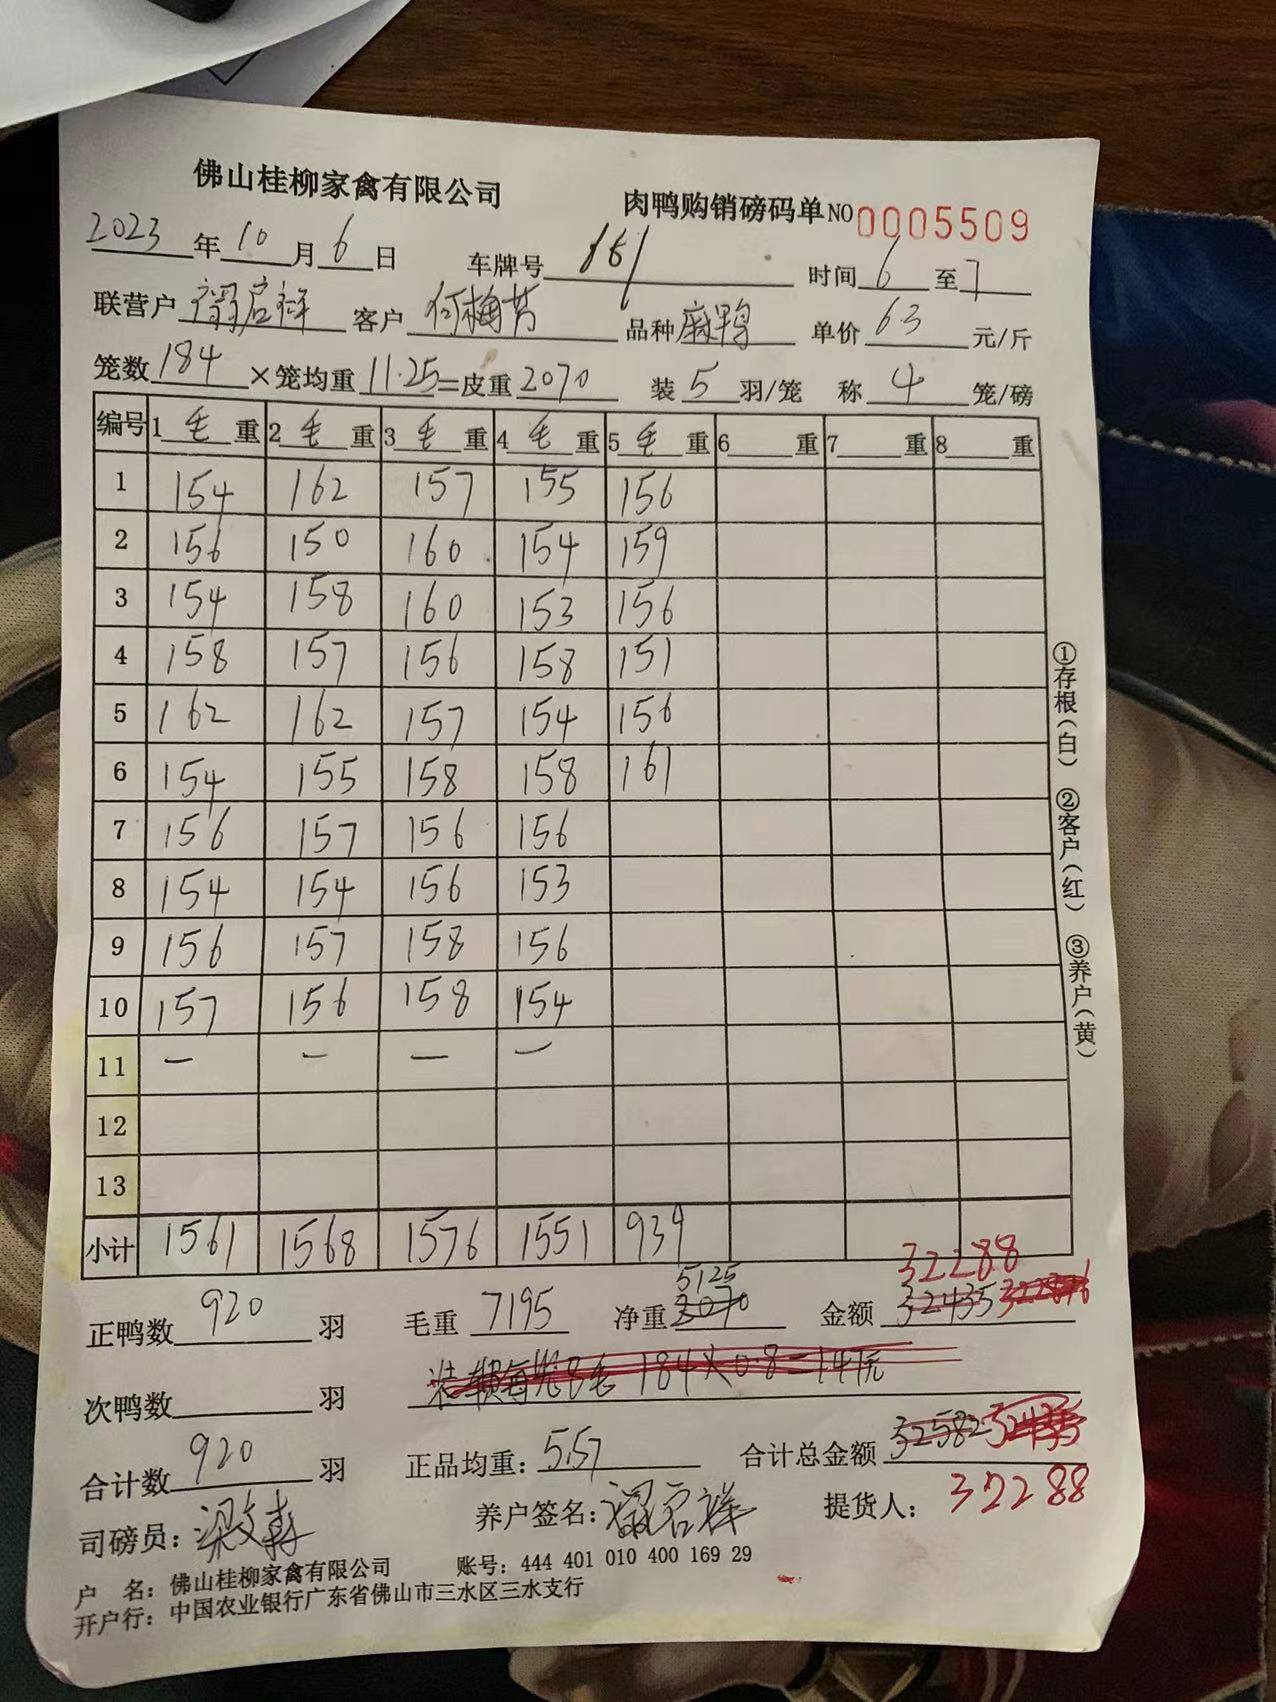 佛山桂柳家禽有限公司 肉鸭购销磅码单NO 0005509
2023年10月6日 车牌号 161 时间6至7
联营户 客户何梅芳 品种麻鸭 单价63元/斤
笼数184×笼均重11.25=皮重2070 装5羽/笼 称4笼/磅
编号 1毛重 2毛重 3毛重 4毛重 5毛重 6重 7重 8重
1 154 162 157 155 156
2 156 150 160 154 159
3 154 158 160 153 156
4 158 157 156 158 151
5 162 162 157 154 156
6 154 155 158 158 161
7 156 157 156 156
8 154 154 156 153
9 156 157 158 156
10 157 156 158 154
11 一 一 一 一
12
13
小计 1561 1568 1576 1551 939
5125 32288
正鸭数920羽 毛重7195 净重 金额32435
次鸭数羽 184×0.8=147元
合计数920羽 正品均重:5.57 合计总金额32582
司磅员: 养户签名: 提货人: 32288
户名:佛山桂柳家禽有限公司 账号:444 401 010 400 169 29
开户行:中国农业银行广东省佛山市三水区三水支行
①存根(白) ②客户(红) ③养户(黄)